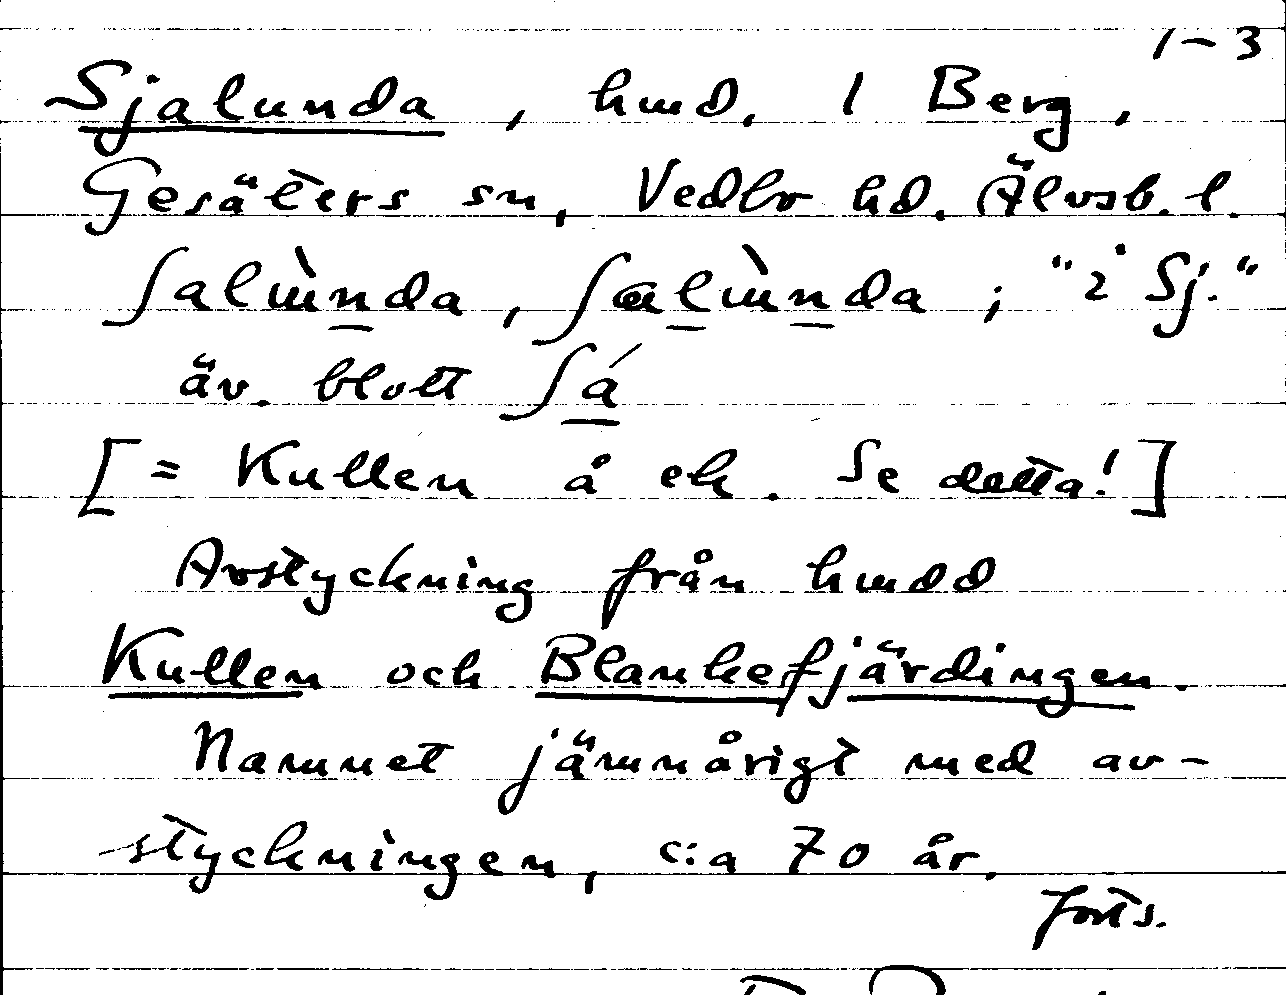 1-3
Sjalunda, hmd. 1 Berg,
Gesäters sn, Vedbo hd. Älvsb. l.
ʃalɯ̀nda, ʃalɯ̀nda; "i Sj."
äv. blott ʃá
[= Kullen å ek. Se detta!]
Avstyckning från hmdd
Kullen och Blankefjärdingen.
Namnet jämnårigt med av-
-styckningen, c:a 70 år.
forts.